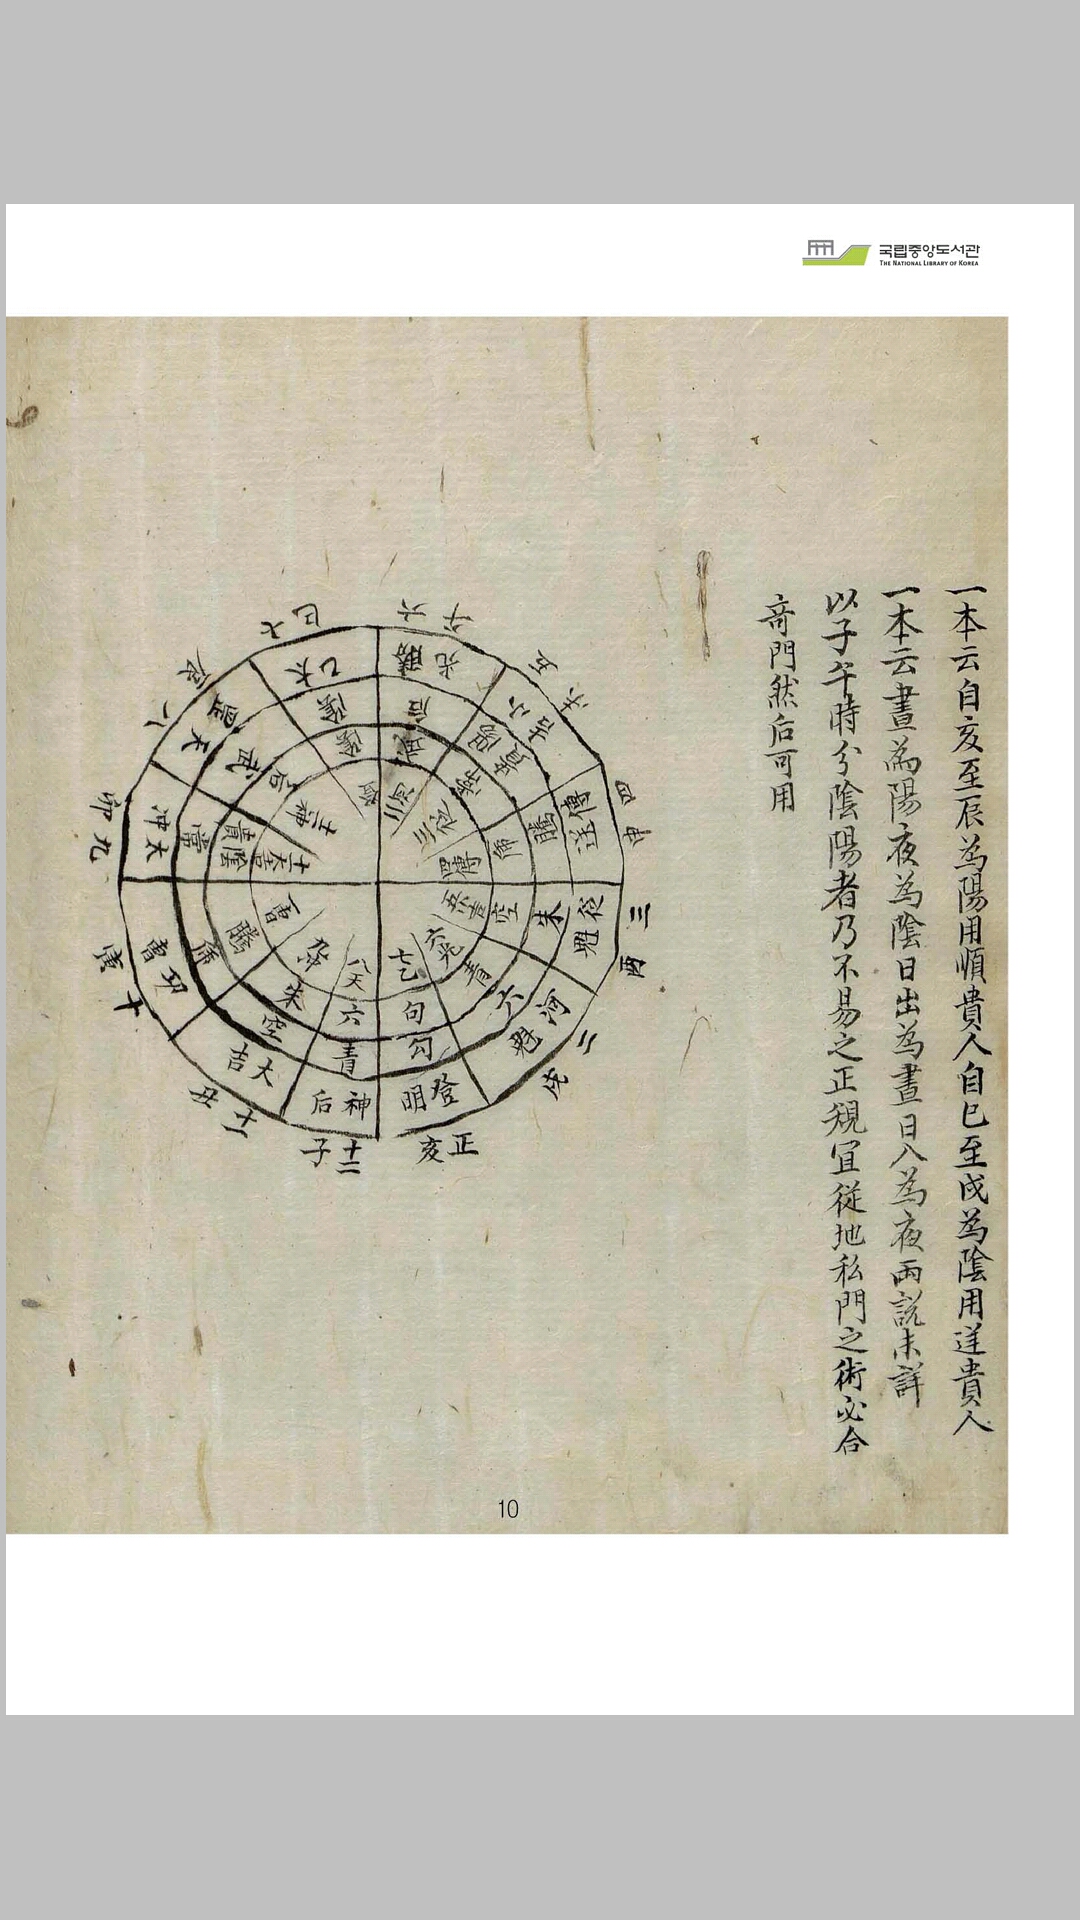 국립중앙도서관
THE NATIONAL LIBRARY OF KOREA
一本云自亥至辰為陽用順貴人自巳至戌為陰用逆貴人
一本云晝為陽夜為陰日出為晝日入為夜兩說未詳
以子午時分陰陽者乃不易之正規宜從地私門之術必合
奇門然后可用
正亥
登明
勾
句
七乙
十二子
神后
青
六
八天
十一丑
大吉
空
朱
十寅
功曹
騰
九卯
太冲
常
八辰
天罡
武
七巳
太乙
陰
六午
勝光
后
五未
小吉
四申
傳送
騰
三酉
從魁
朱
二戌
河魁
六
青
六光
五吉
空
四傳
三從
二河
10